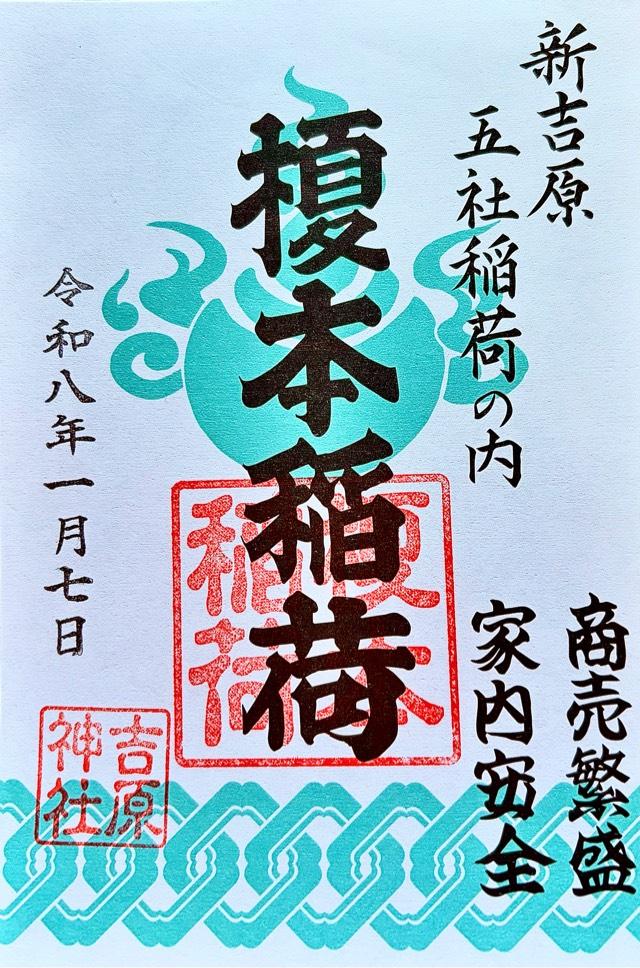 新吉原
五社稲荷の内
商売繁盛
家内安全
榎本稲荷
榎本
稲荷
令和八年一月七日
吉原
神社